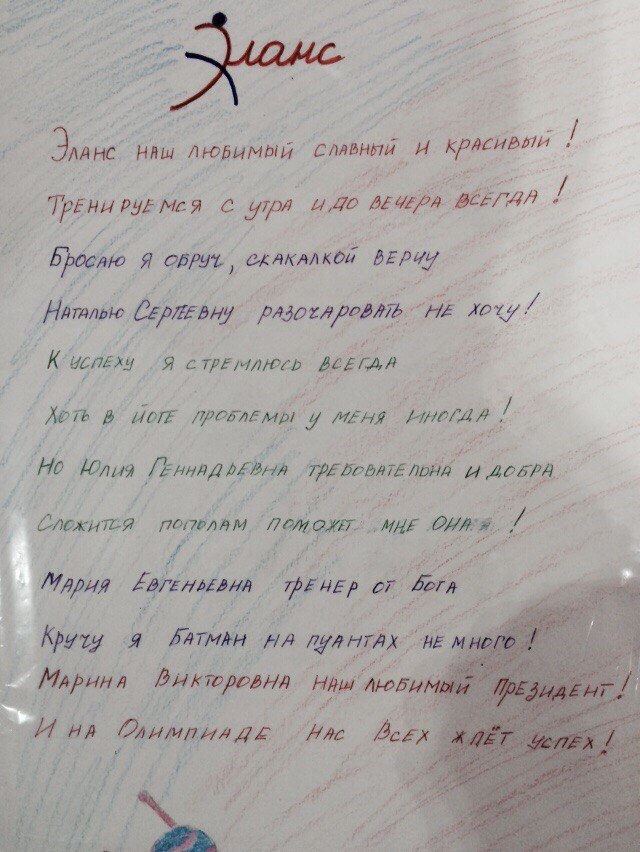 Эланс
Эланс наш любимый славный и красивый!
Тренируемся с утра и до вечера всегда!
Бросаю я обруч, скакалкой верчу
Наталью Сергеевну разочаровать не хочу!
К успеху я стремлюсь всегда
Хоть в йоге проблемы у меня иногда!
Но Юлия Геннадьевна требовательна и добра
Сложится пополам поможет мне она!
Мария Евгеньевна тренер от Бога
Кручу я батман на пуантах не много!
Марина Викторовна наш любимый президент!
И на Олимпиаде нас всех ждёт успех!